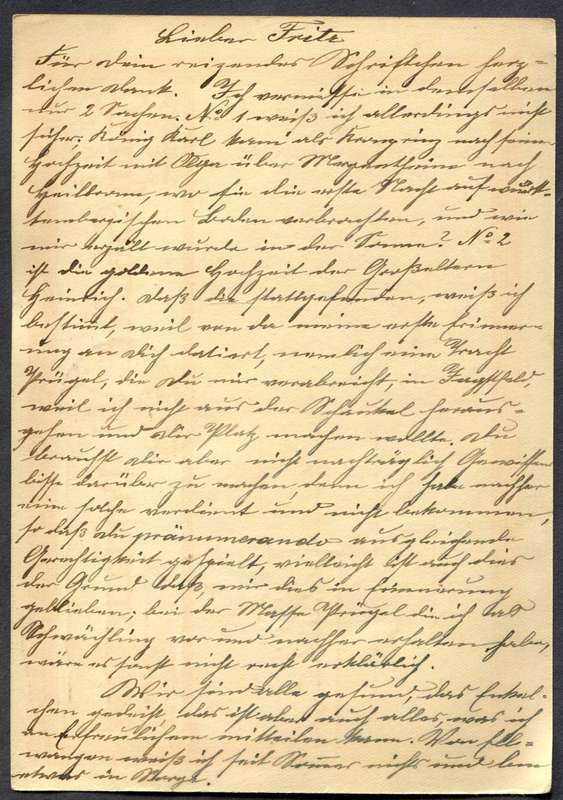 Lieber Fritz
Für Dein reizendes Schriftchen herz-
lichen Dank. Ich vermisse in demselben
nur 2 Sachen. No 1 weiß ich allerdings nicht
sicher; König Karl kam als Kronprinz nach seiner
Hochzeit mit Olga über Mergentheim nach
Heilbronn, wo sie die erste Nacht auf württ-
tembergischen Boden verbrachten, und wie
mir erzält wurde in der Sonne? No 2
ist die goldene Hochzeit der Großeltern
Heinrich. Daß die stattgefunden, weiß ich
bestimt, weil von da meine erste Erinner-
ung an Dich datiert, nemlich eine Tracht
Prügel, die Du mir verabreicht, in Jagstfeld,
weil ich nicht aus der Schaukel heraus-
gehen und Dir Platz machen wollte. Du
brauchst Dir aber nicht nachträglich Gewissens
bisse darüber zu machen, denn ich habe nachher
eine solche verdient und nicht bekommen,
so daß Du pränumerando ausgleichende
Gerechtigkeit gespielt, vielleicht ist auch dies
der Grund daß mir dies in Erinnerung
geblieben; bei der Masse Prügel die ich als
Schwächling vor und nachher erhalten habe,
wäre es sonst nicht recht erklärlich.
Wir sind alle gesund, das Enkel-
chen gedeiht, das ist aber auch alles, was ich
an Erfreulichem mitteilen kann. Von Ell-
wangen weiß ich seit Sommer nichts und bin
etwas in Sorge.